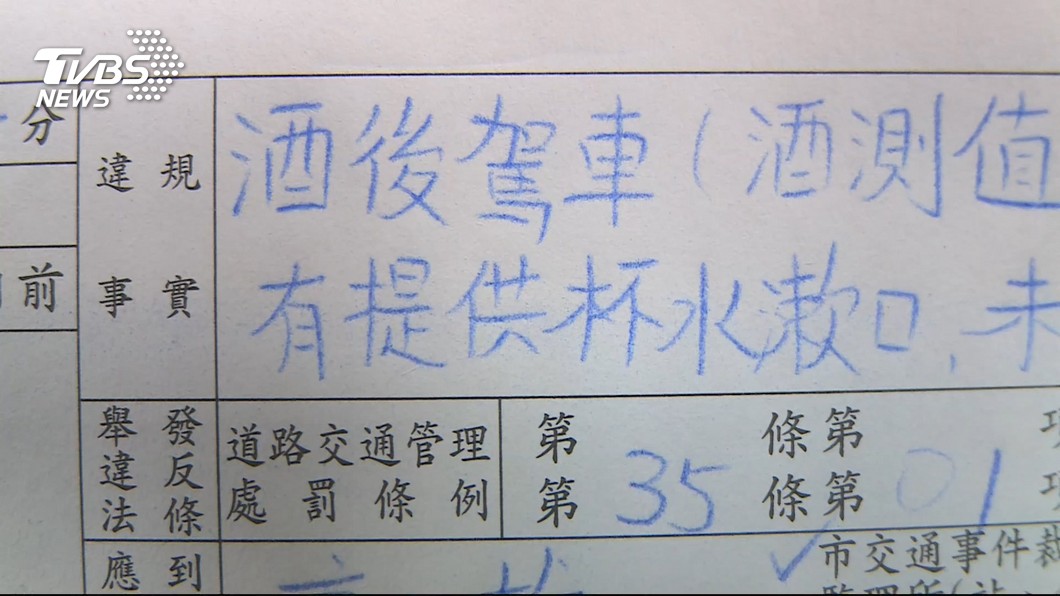 TVBS
NEWS
分
違規
事實
酒後駕車(酒測值
有提供杯水漱口,未
前
舉發
違反
法條
道路交通管理
處罰條例
第 條第
第35條第01
應到
市交通事件裁